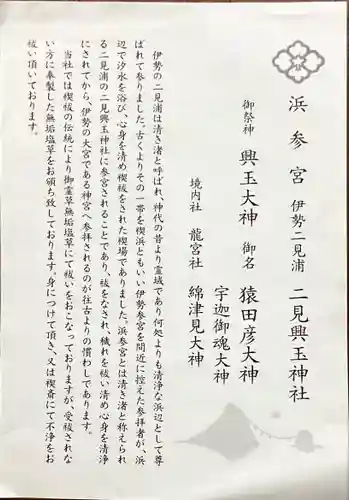 浜参宮 伊勢二見浦 二見興玉神社
御祭神 興玉大神 御名 猿田彦大神
宇迦御魂大神
境内社 龍宮社 綿津見大神
伊勢の二見浦は清き渚と呼ばれ、神代の昔より霊域であり何処よりも清浄な浜辺として尊
ばれて参りました。古くよりその一帯を禊浜ともいい伊勢参宮を間近に控えた参拝者が、浜
辺で汐水を浴び、心身を清め禊祓をされた禊場でありました。浜参宮とは清き渚と称えられ
る二見浦の二見興玉神社に参宮されることであり、祓をなされ、穢れを祓い清め心身を清浄
にされてから、伊勢の大宮である神宮へ参拝されるのが往古よりの慣わしであります。
当社では禊祓の伝統により御霊草無垢塩草にて祓いをおこなっておりますが、受祓されな
い方に奉製した無垢塩草をお頒ち致しております。身につけて頂き、又は禊斎にて不浄をお
祓い頂いております。